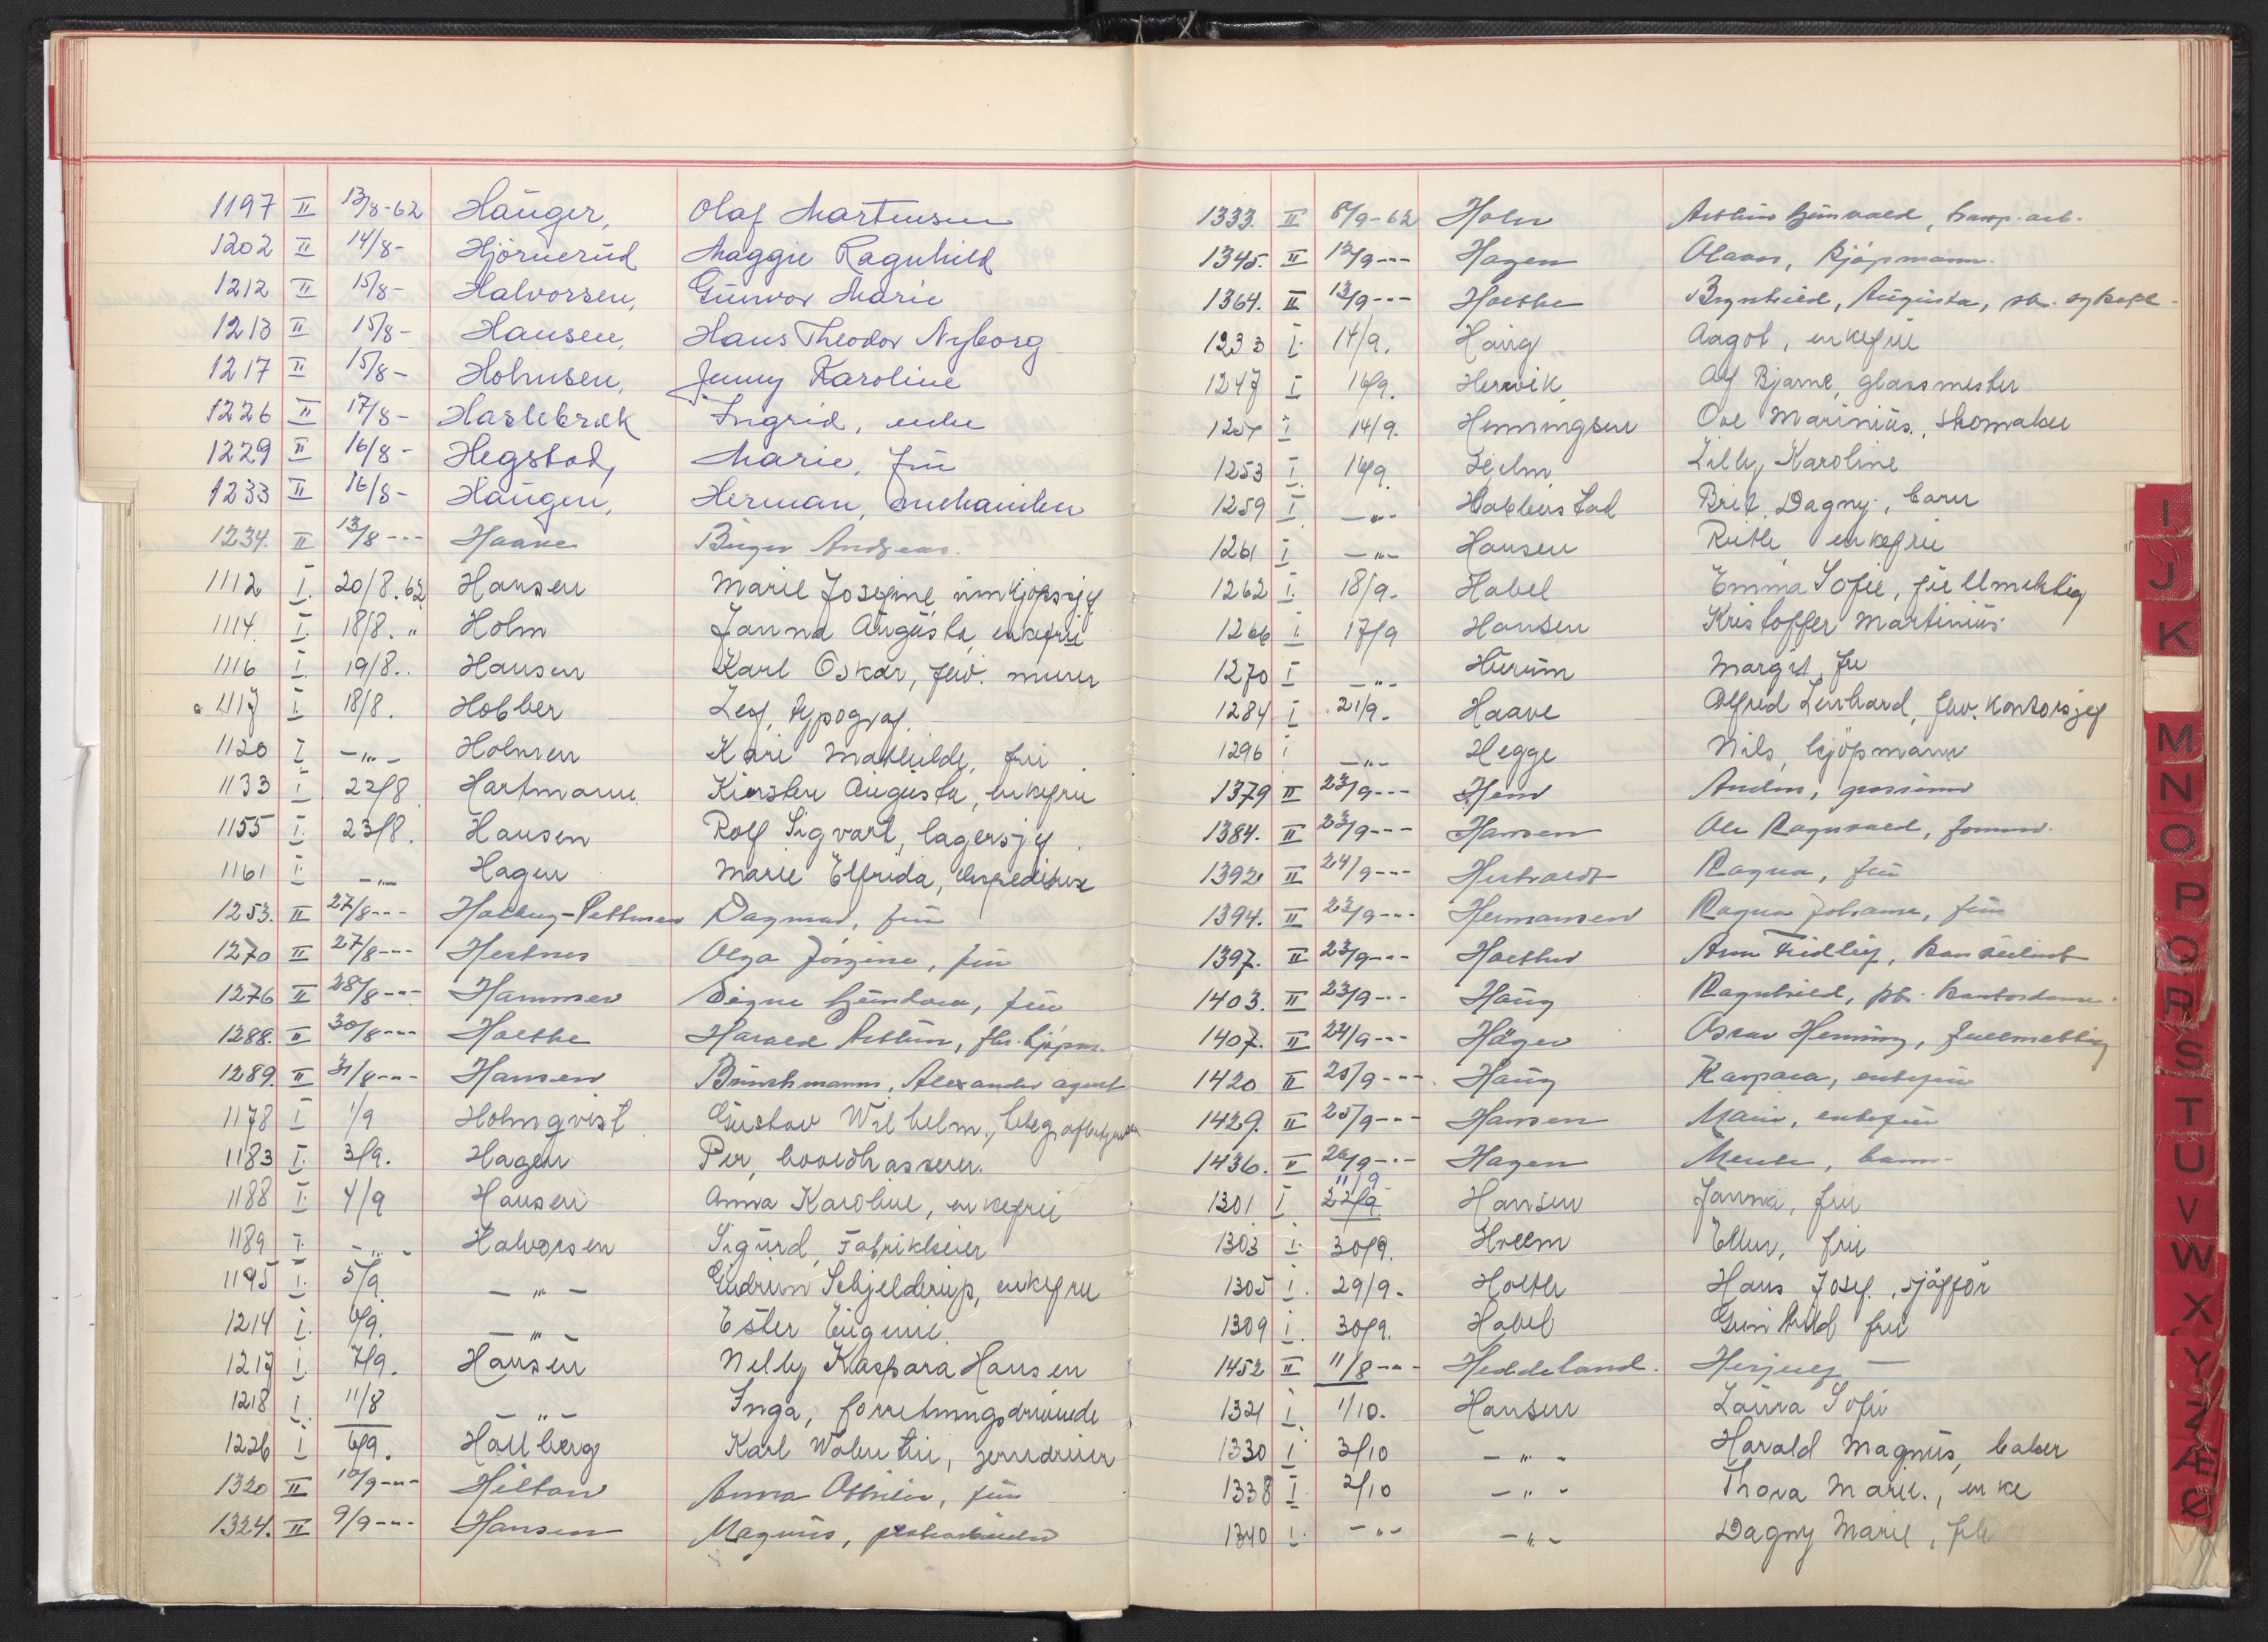 1197 II 13/8-62 Hauger, Olaf Martensen
1202 II 14/8- Hjörnerud Maggie Ragnhild
1212 II 15/8- Halvorsen, Gunvor Marie
1213 II 15/8- Hansen, Hans Theodor Nyborg
1217 II 15/8- Holmsen, Jenny Karoline
1226 II 17/8- Haslebrek Ingrid, enke
1229 II 16/8- Hegstad, Marie, fru
1233 II 16/8- Haugen, Herman, mekaniker
1234. II 13/8 --- Haave Birger Andreas.
1112 I. 20/8.62 Hansen Marie Josefine innkjøpssjef
1114 I. 18/8. " Holm Janna Augusta, enkefru
1116 I. 19/8.. Hansen Karl Oskar, fhv. murer
1117 I 18/8. Hobber Leif, typograf.
1120 I -"- Holmsen Kari Mathilde, fru
1133 I 22/8 Hartmann Kirsten Augusta, enkefru
1155 I. 23/8. Hansen Rolf Sigvart, lagersjef.
1161 I. -"- Hagen Marie Elfrida, ekspeditrise
1253. II 27/8--- Dagmar, fru
1270 II 27/8--- Hestnes Olga Jörgine, fru
1276 II 28/8--- Hammer Signe Gundora, fru
1288. II 30/8--- Holthe Harald Arthur, fhv. kjøpm.
1289. II 31/8--- Hansen Alexander agent
1178 I 1/9 Holmqvist Gustav Wilhelm,
1183 I. 3/9. Hagen Per, hovedkasserer.
1188 I. 4/9 Hansen Anna Karoline, enkefru
1189 I. -"- Halvorsen Sigurd, Fabrikkeier
1195 I. 5/9 -"- Gudrun Schjelderup, enkefru
1214 I. 6/9. -"- Ester Eugenie.
1217 I. 7/9. Hansen Nelly Kaspara Hansen
1218 I 11/8 " Inga, forretningsdrivende
1226 I 6/9. Hallberg Karl Valentin, jerndreier
1320 II 10/9--- Hilton Anna Othilie, fru
1324. II 9/9--- Hansen Magnus,
1333. II 8/9-62 Holm Arthur Gunvald,
1345. II 12/9--- Hagen Olaus, kjøpmann.
1364. II 13/9--- Holthe Brynhild, Augusta,
1233 I. 14/9. Haug Aagot, enkefru
1247 I 16/9. Hervik Alf Bjarne, glassmester
I 14/9. Henningsen Ove Marinius, skomaker
1253 I 16/9. Hjelm Lilly Karoline
1259 I -"- Hobberstad Brit Dagny, barn
1261 I -"- Hansen Ruth enkefru
1262 I. 18/9. Habel Emma Sofie, fullmektig
1266 I. 17/9 Hansen Kristoffer Martinius
1270 I -"- Hurum Margit, fru
1284 I 21/9. Haave Alfred Lenhard, fhv. kontorsjef
1296 I -"- Hegge Nils, kjøpmann
1379 II 23/9--- Hem Anders, grosserer
1384. II 23/9--- Hansen Ole Ragnvald, formann.
1392 II 24/9--- Ragna, fru
1394. II 23/9--- Hermansen Ragna Johanne, fru
1397. II 23/9--- Holther Arne Fridleif, konsulent
1403. II 23/9--- Haug Ragnhild, kontordame.
1407. II 24/9--- Häger Oscar Henning, fullmektig
1420 II 25/9--- Haug Kaspara, enkefru
1429. II 25/9--- Hansen Marie, enkefru
1436. II 26/9--- Hagen Merete, barn-
1301 I 22/9 11/9 Hansen Janna, fru
1303 I. 30/9. Holm Ellen, fru
1305 I. 29/9. Holth Hans Josef, sjåffør
1309 I. 30/9. Habel Gunhild fru
1452 II 11/8--- Heddeland. Herjulf -
1321 I. 1/10. Hansen Laura Sofie
1330 I 3/10 -"- Harald Magnus, baker
1338 I. 2/10 -"- Thora Marie., enke
1340 I. -"- -"- Dagny Marie,
I
J
K
M
N
O
P
Q
R
S
T
U
V
W
X
Y
Z
Æ
Ø